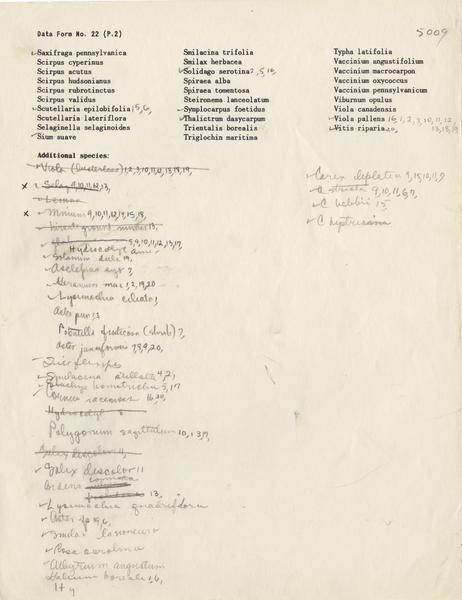 5009
Data Form No. 22 (P.2)
Saxifraga pennsylvanica
Scirpus cyperinus
Scirpus acutus
Scirpus hudsonianus
Scirpus rubrotinctus
Scirpus validus
Scutellaria epilobifolia 15, 6,
Scutellaria lateriflora
Selaginella selaginoides
Sium suave
Smilacina trifolia
Smilax herbacea
Solidago serotina 2, 5, 16,
Spiraea alba
Spiraea tomentosa
Steironema lanceolatum
Symplocarpus foetidus
Thalictrum dasycarpum
Trientalis borealis
Triglochin maritima
Typha latifolia
Vaccinium angustifolium
Vaccinium macrocarpon
Vaccinium oxycoccus
Vaccinium pennsylvanicum
Viburnum opulus
Viola canadensis
Viola pallens 16, 1, 2, 3, 10, 11, 12,
Vitis riparia 20, 13, 18, 19
Additional species:
Viola 1, 2, 3, 10, 11, 12, 13, 18, 19,
9, 10, 11, 12, 13,
Lemna
Mnium 9, 10, 11, 12, 14, 15, 18,
13,
8, 9, 10, 11, 12, 13, 17,
Hydrocotyle am
Solanum dulc 19,
Asclepias syr 7,
Geranium mac 1, 2, 19, 20
Lysimachia ciliata 1
Aster pun 13
Potentilla fruticosa (shrub) 7,
Aster junciformis 7, 8, 9, 20,
Smilacina stellata 4, 2,
Stachys 5, 17
Cornus racemosa 16, 20,
Hydrocotyl 8
Polygonum sagittatum 10, 13, 7,
Salix discolor 11,
Salix discolor 11
13,
Lysimachia quadriflora
Aster 9, 6,
Smilax lasioneura
Rosa carolina
Athyrium angustum
Galium boreale 16,
Carex 9, 15, 10, 11, 7
C stricta 9, 10, 11, 6, 7,
C bebbii 15
C hystricina